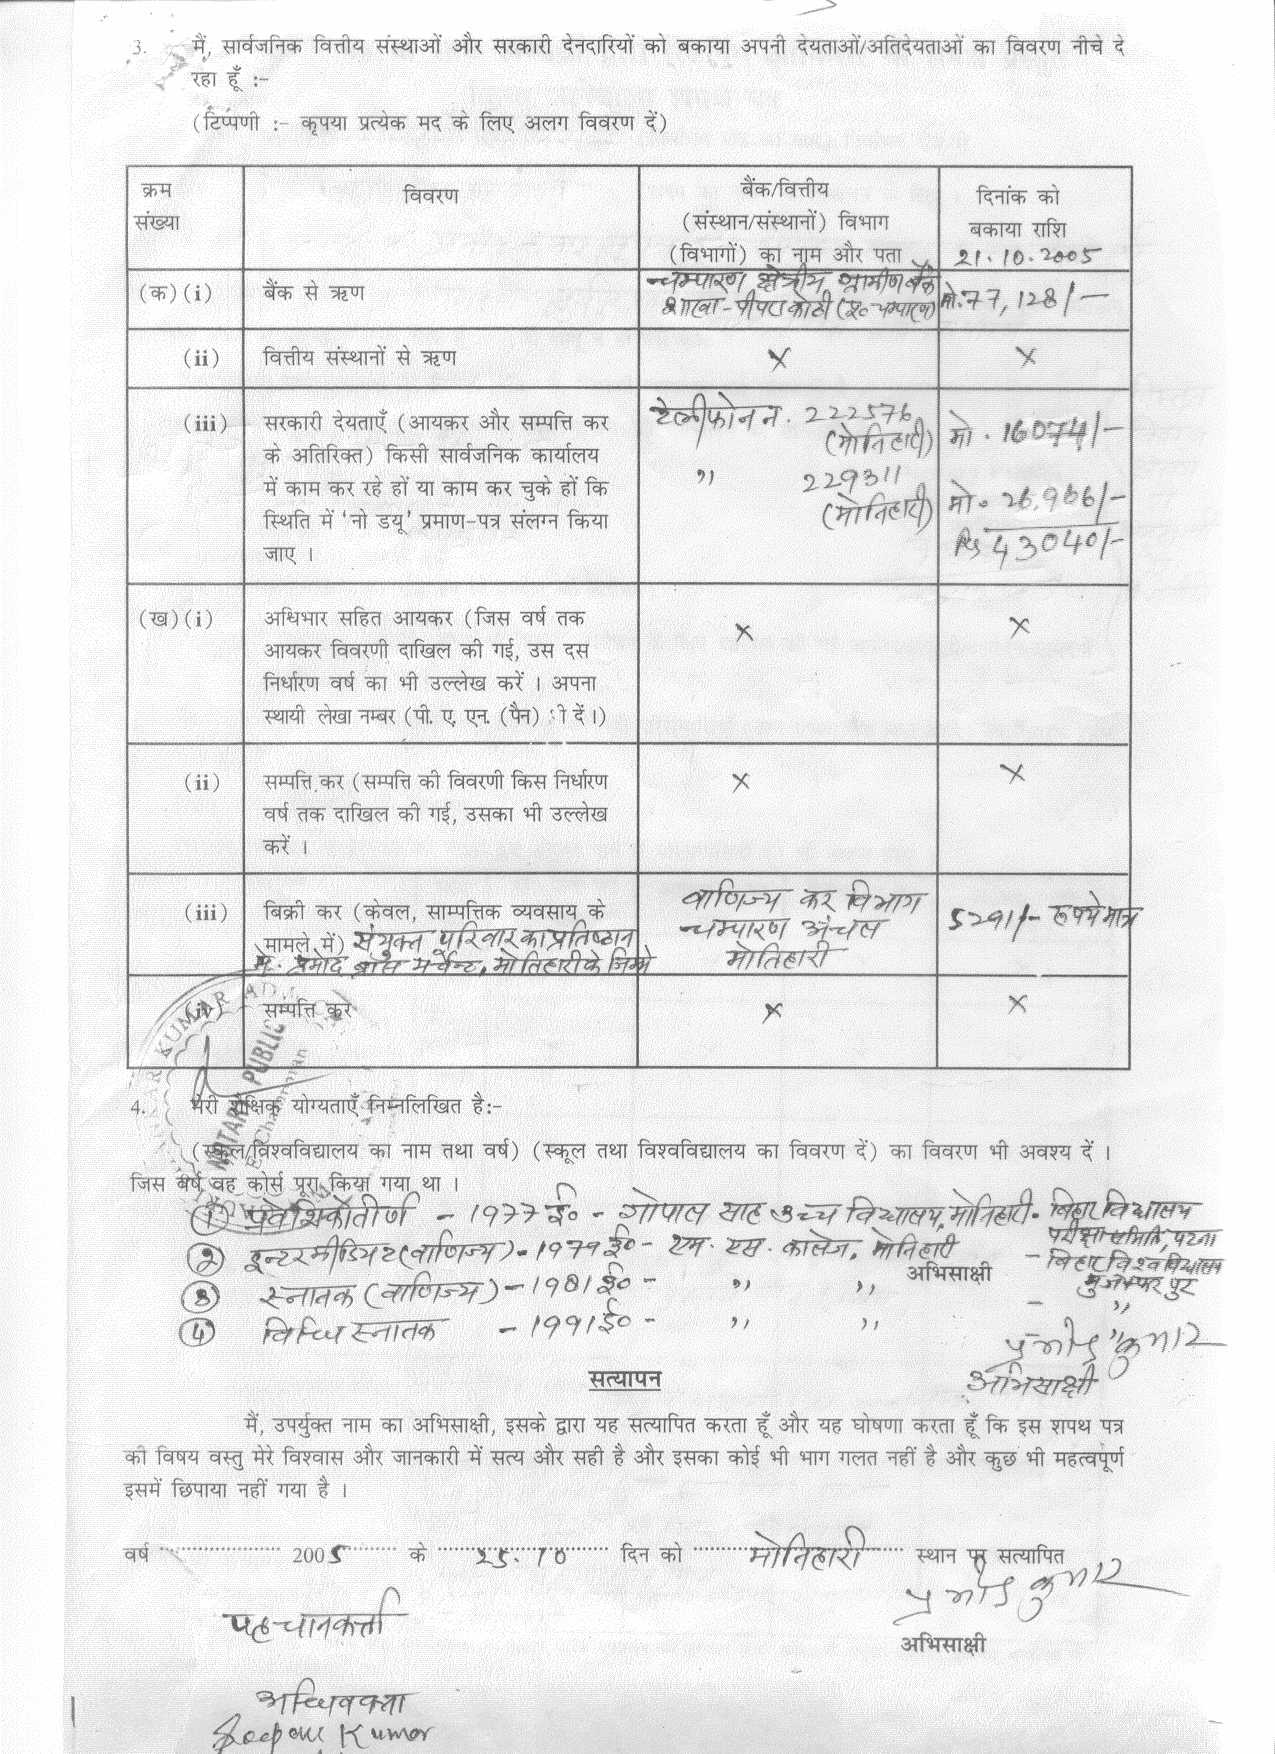 3. मैं, सार्वजनिक वित्तीय संस्थाओं और सरकारी देनदारियों को बकाया अपनी देयताओं/अतिदेयताओं का विवरण नीचे दे
रहा हूँ :-
(टिप्पणी :- कृपया प्रत्येक मद के लिए अलग विवरण दें)
क्रम संख्या
विवरण
बैंक/वित्तीय
(संस्थान/संस्थानों) विभाग
(विभागों) का नाम और पता
दिनांक को
बकाया राशि
21.10.2005
(क)(i) बैंक से ऋण
चम्पारण क्षेत्रीय ग्रामीण बैंक
शाखा-पीपराकोठी (पू० चम्पारण)
मो.77,128/-
(ii) वित्तीय संस्थानों से ऋण × ×
(iii) सरकारी देयताएँ (आयकर और सम्पत्ति कर
के अतिरिक्त) किसी सार्वजनिक कार्यालय
में काम कर रहे हों या काम कर चुके हों कि
स्थिति में 'नो डयू' प्रमाण-पत्र संलग्न किया
जाए ।
टेलीफोन न. 222576
(मोतिहारी)
" 229311
(मोतिहारी)
मो. 16074/-
मो. 26,966/-
Rs 43040/-
(ख)(i) अधिभार सहित आयकर (जिस वर्ष तक
आयकर विवरणी दाखिल की गई, उस दस
निर्धारण वर्ष का भी उल्लेख करें । अपना
स्थायी लेखा नम्बर (पी. ए. एन. (पैन) ी दें।)
× ×
(ii) सम्पत्ति कर (सम्पत्ति की विवरणी किस निर्धारण
वर्ष तक दाखिल की गई, उसका भी उल्लेख
करें ।
× ×
(iii) बिक्री कर (केवल, साम्पत्तिक व्यवसाय के
मामले में) संयुक्त परिवार का प्रतिष्ठान
मे. प्रमोद ग्लास मर्चेन्ट, मोतिहारी के जिम्मे
वाणिज्य कर विभाग
चम्पारण अंचल
मोतिहारी
5291/- रूपये मात्र
(iv) सम्पत्ति कर × ×
KUMAR
NOTARY PUBLIC
4. मेरी शैक्षिक योग्यताएँ निम्नलिखित है:-
(स्कूल/विश्वविद्यालय का नाम तथा वर्ष) (स्कूल तथा विश्वविद्यालय का विवरण दें) का विवरण भी अवश्य दें ।
जिस वर्ष वह कोर्स पूरा किया गया था ।
(1) प्रवेशिकोतीर्ण - 1977 ई० - गोपाल साह उच्च विद्यालय, मोतिहारी - बिहार विद्यालय
परीक्षा समिति, पटना
(2) इन्टरमीडियट (वाणिज्य) - 1979 ई० - एम. एस. कालेज, मोतिहारी - बिहार विश्वविद्यालय
मुजफ्फरपुर
अभिसाक्षी
(3) स्नातक (वाणिज्य) - 1981 ई० - " " - "
(4) विधि स्नातक - 1991 ई० - " " "
प्रमोद कुमार
अभिसाक्षी
सत्यापन
मैं, उपर्युक्त नाम का अभिसाक्षी, इसके द्वारा यह सत्यापित करता हूँ और यह घोषणा करता हूँ कि इस शपथ पत्र
की विषय वस्तु मेरे विश्वास और जानकारी में सत्य और सही है और इसका कोई भी भाग गलत नहीं है और कुछ भी महत्वपूर्ण
इसमें छिपाया नहीं गया है ।
वर्ष 2005 के 25.10 दिन को मोतिहारी स्थान पर सत्यापित
प्रमोद कुमार
अभिसाक्षी
पहचानकर्त्ता
अधिवक्ता
Kumar